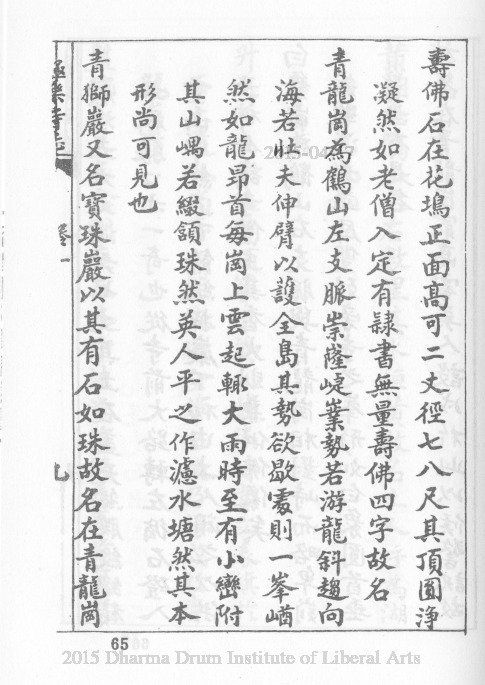 壽佛石在花塢正面高可二丈徑七八尺其頂圓淨
凝然如老僧入定有隸書無量壽佛四字故名
青龍崗為鶴山左支脈崇隆崨嶪勢若游龍斜趨向
海若壯夫伸臂以護全島其勢欲歇處則一峯崷
然如龍昂首每崗上雲起輙大雨時至有小巒附
其山嵎若綴頷珠然英人平之作濾水塘然其本
形尚可見也
青獅巖又名寶珠巖以其有石如珠故名在青龍崗
極樂寺志
卷一
九
65
2015-04-17
2015 Dharma Drum Institute of Liberal Arts